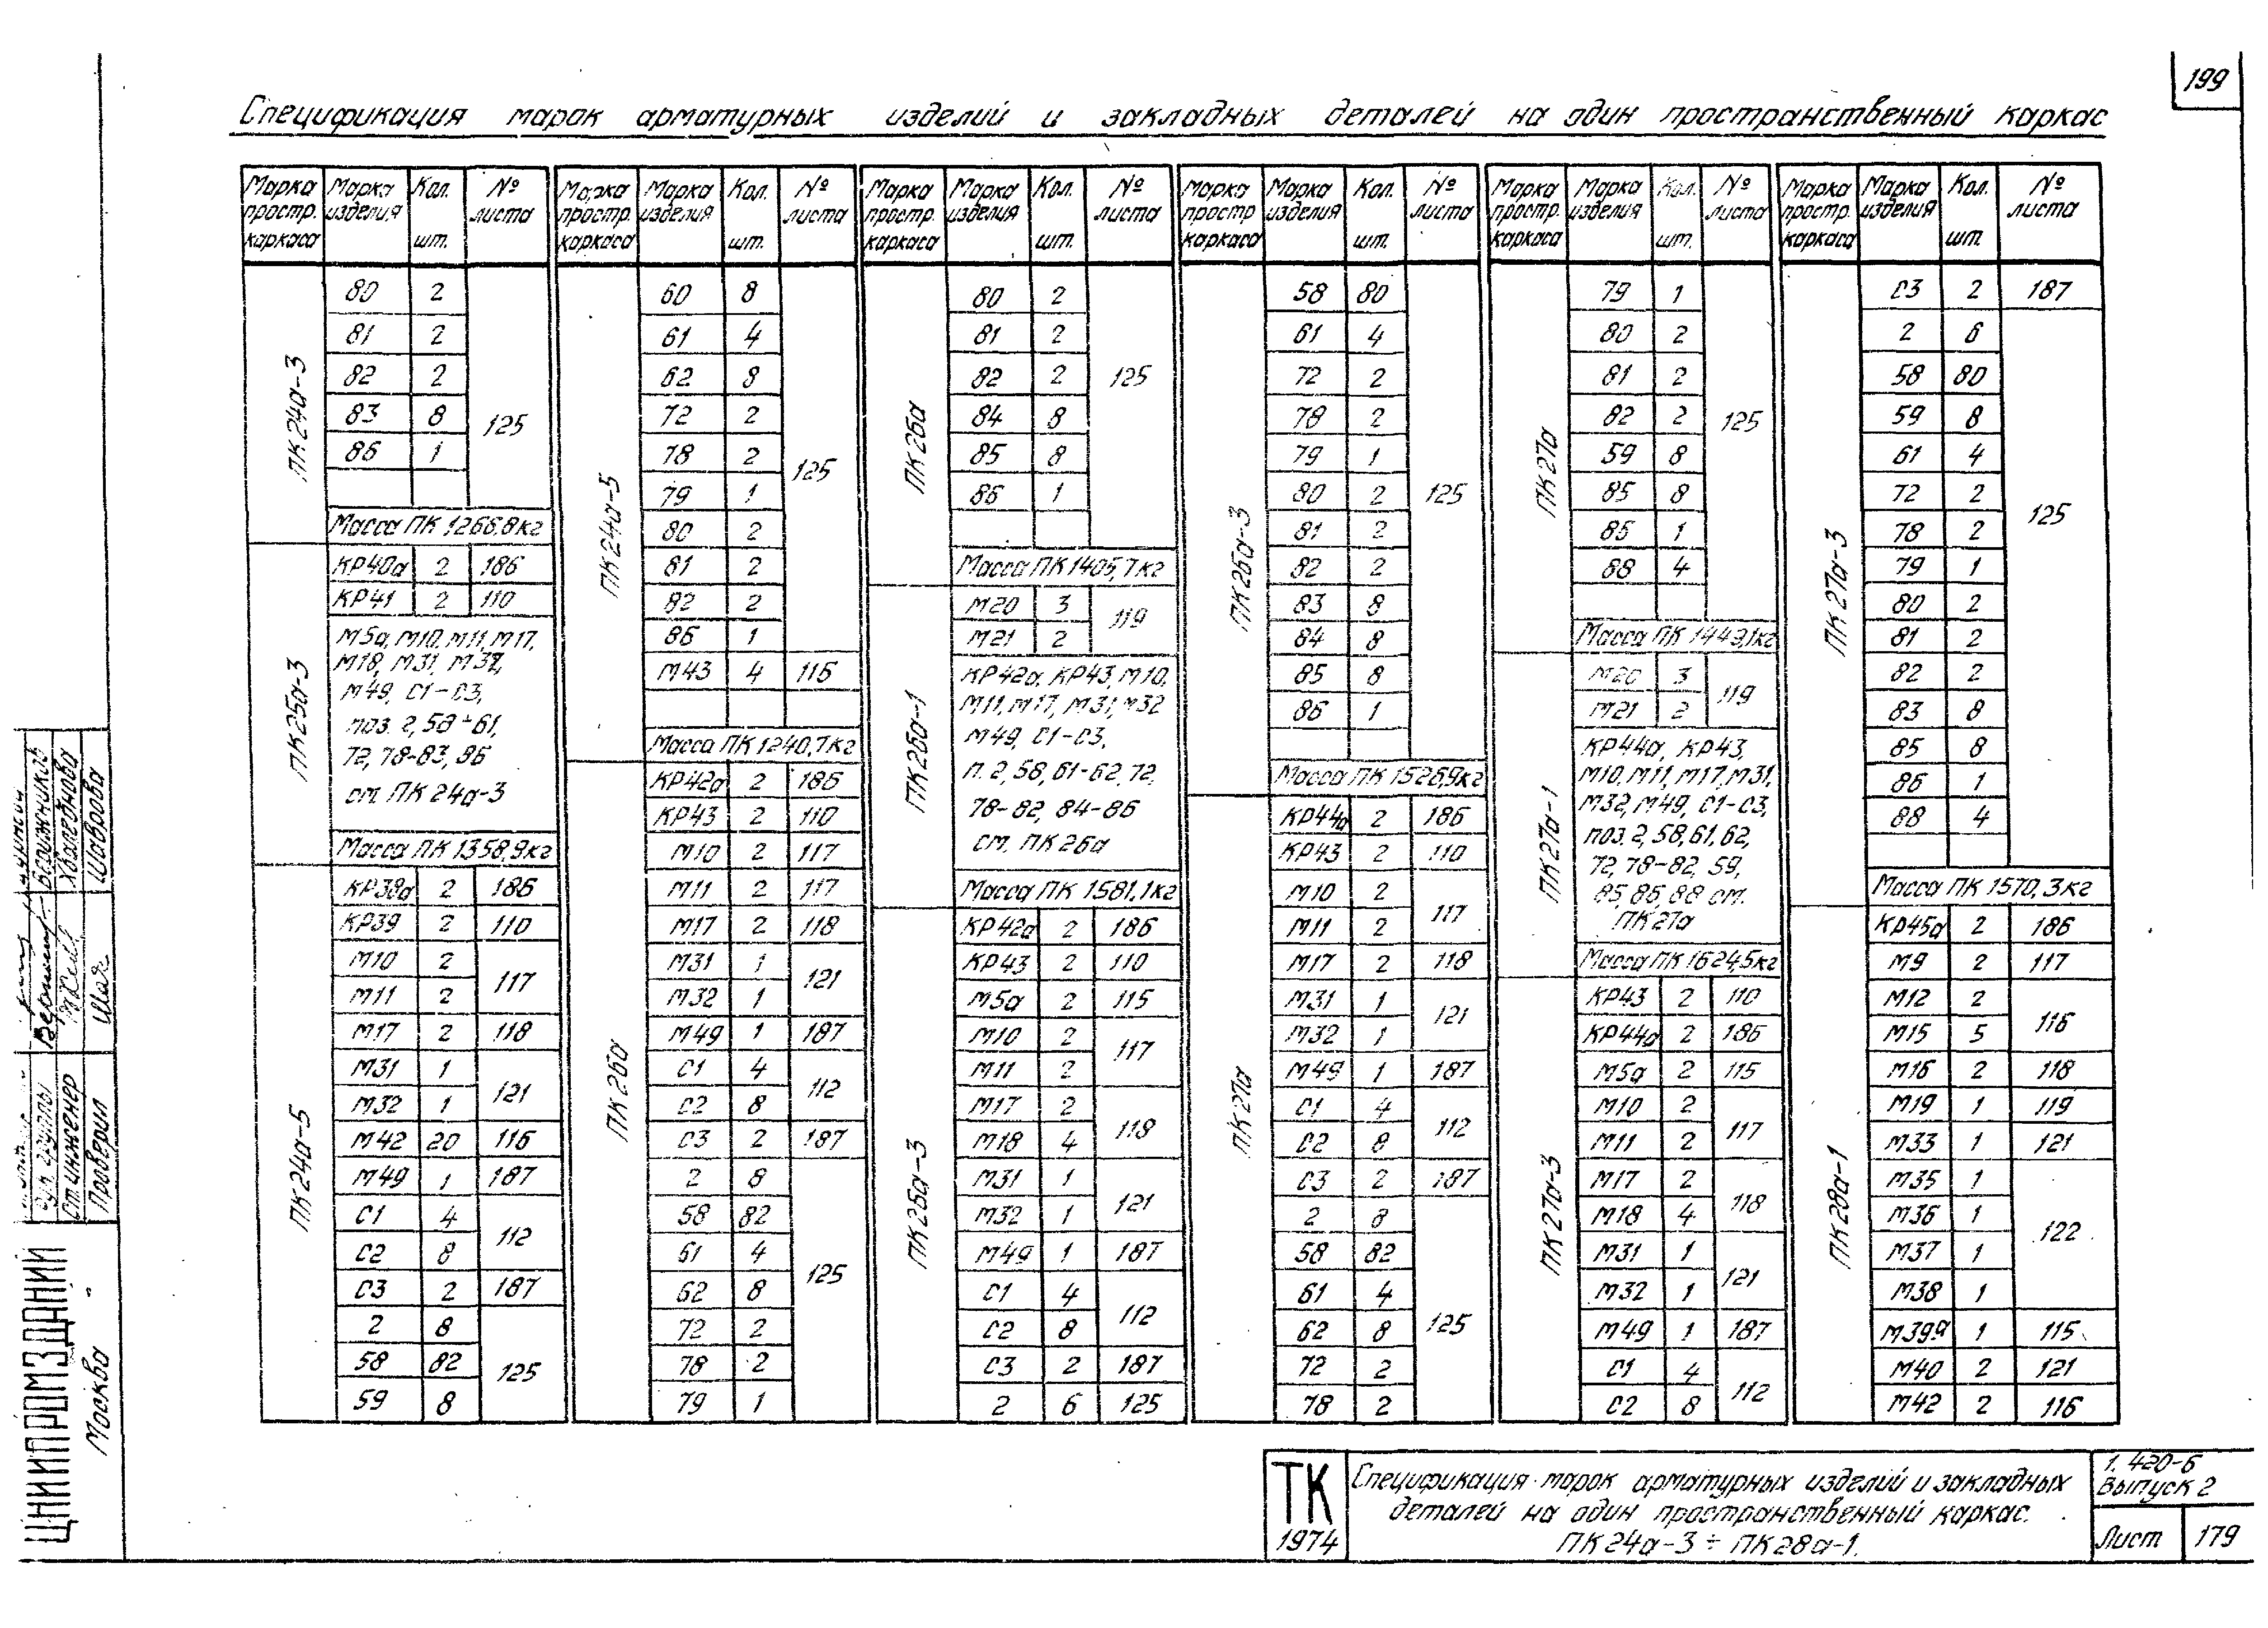 199
Спецификация марок арматурных изделий и закладных деталей на один пространственный каркас
Марка простр. каркаса Марка изделия Кол. шт. № листа
ПК24а-3
80 2 125
81 2
82 2
83 8
86 1
Масса ПК 1266,8кг
ПК25а-3
КР40а 2 186
КР41 2 110
М5а, М10, М11, М17,
М18, М31, М32,
М49, С1-С3,
поз. 2, 58÷61,
72, 78-83, 86
см. ПК 24а-3
Масса ПК 1358,9кг
ПК24а-5
КР38а 2 186
КР39 2 110
М10 2 117
М11 2
М17 2 118
М31 1 121
М32 1
М42 20 116
М49 1 187
С1 4 112
С2 8
С3 2 187
2 8 125
58 82
59 8
Марка простр. каркаса Марка изделия Кол. шт. № листа
ПК24а-5
60 8 125
61 4
62 8
72 2
78 2
79 1
80 2
81 2
82 2
86 1
М43 4 116
Масса ПК 1240,7кг
ПК26а
КР42а 2 186
КР43 2 110
М10 2 117
М11 2 117
М17 2 118
М31 1 121
М32 1
М49 1 187
С1 4 112
С2 8
С3 2 187
2 8 125
58 82
61 4
62 8
72 2
78 2
79 1
Марка простр. каркаса Марка изделия Кол. шт. № листа
ПК26а
80 2 125
81 2
82 2
84 8
85 8
86 1
Масса ПК 1405,7кг
ПК26а-1
М20 3 119
М21 2
КР42а, КР43, М10,
М11, М17, М31, М32
М49, С1-С3,
п. 2, 58, 61-62, 72,
78-82, 84-86
см. ПК26а
Масса ПК 1581,1кг
ПК26а-3
КР42а 2 186
КР43 2 110
М5а 2 115
М10 2 117
М11 2
М17 2 118
М18 4
М31 1 121
М32 1
М49 1 187
С1 4 112
С2 8
С3 2 187
2 6 125
Марка простр. каркаса Марка изделия Кол. шт. № листа
ПК26а-3
58 80 125
61 4
72 2
78 2
79 1
80 2
81 2
82 2
83 8
84 8
85 8
86 1
Масса ПК 1526,9кг
ПК27а
КР44а 2 186
КР43 2 110
М10 2 117
М11 2
М17 2 118
М31 1 121
М32 1
М49 1 187
С1 4 112
С2 8
С3 2 187
2 8 125
58 82
61 4
62 8
72 2
78 2
Марка простр. каркаса Марка изделия Кол. шт. № листа
ПК27а
79 1 125
80 2
81 2
82 2
59 8
85 8
86 1
88 4
Масса ПК 1443,1кг
ПК27а-1
М20 3 119
М21 2
КР44а, КР43,
М10, М11, М17, М31,
М32, М49, С1-С3,
поз. 2, 58, 61, 62,
72, 78-82, 59,
85, 86, 88 см.
ПК27а
Масса ПК 1624,5кг
ПК27а-3
КР43 2 110
КР44а 2 186
М5а 2 115
М10 2 117
М11 2
М17 2 118
М18 4
М31 1 121
М32 1
М49 1 187
С1 4 112
С2 8
Марка простр. каркаса Марка изделия Кол. шт. № листа
ПК27а-3
С3 2 187
2 6 125
58 80
59 8
61 4
72 2
78 2
79 1
80 2
81 2
82 2
83 8
85 8
86 1
88 4
Масса ПК 1570,3кг
ПК28а-1
КР45а 2 186
М9 2 117
М12 2 116
М15 5
М16 2 118
М19 1 119
М33 1 121
М35 1 122
М36 1
М37 1
М38 1
М39а 1 115
М40 2 121
М42 2 116
Рук. группы
Ст. инженер
Проверил Шаврова
ЦНИИПРОМЗДАНИЙ
Москва
ТК
1974
Спецификация марок арматурных изделий и закладных
деталей на один пространственный каркас.
ПК24а-3 ÷ ПК28а-1.
1.420-6
Выпуск 2
Лист 179